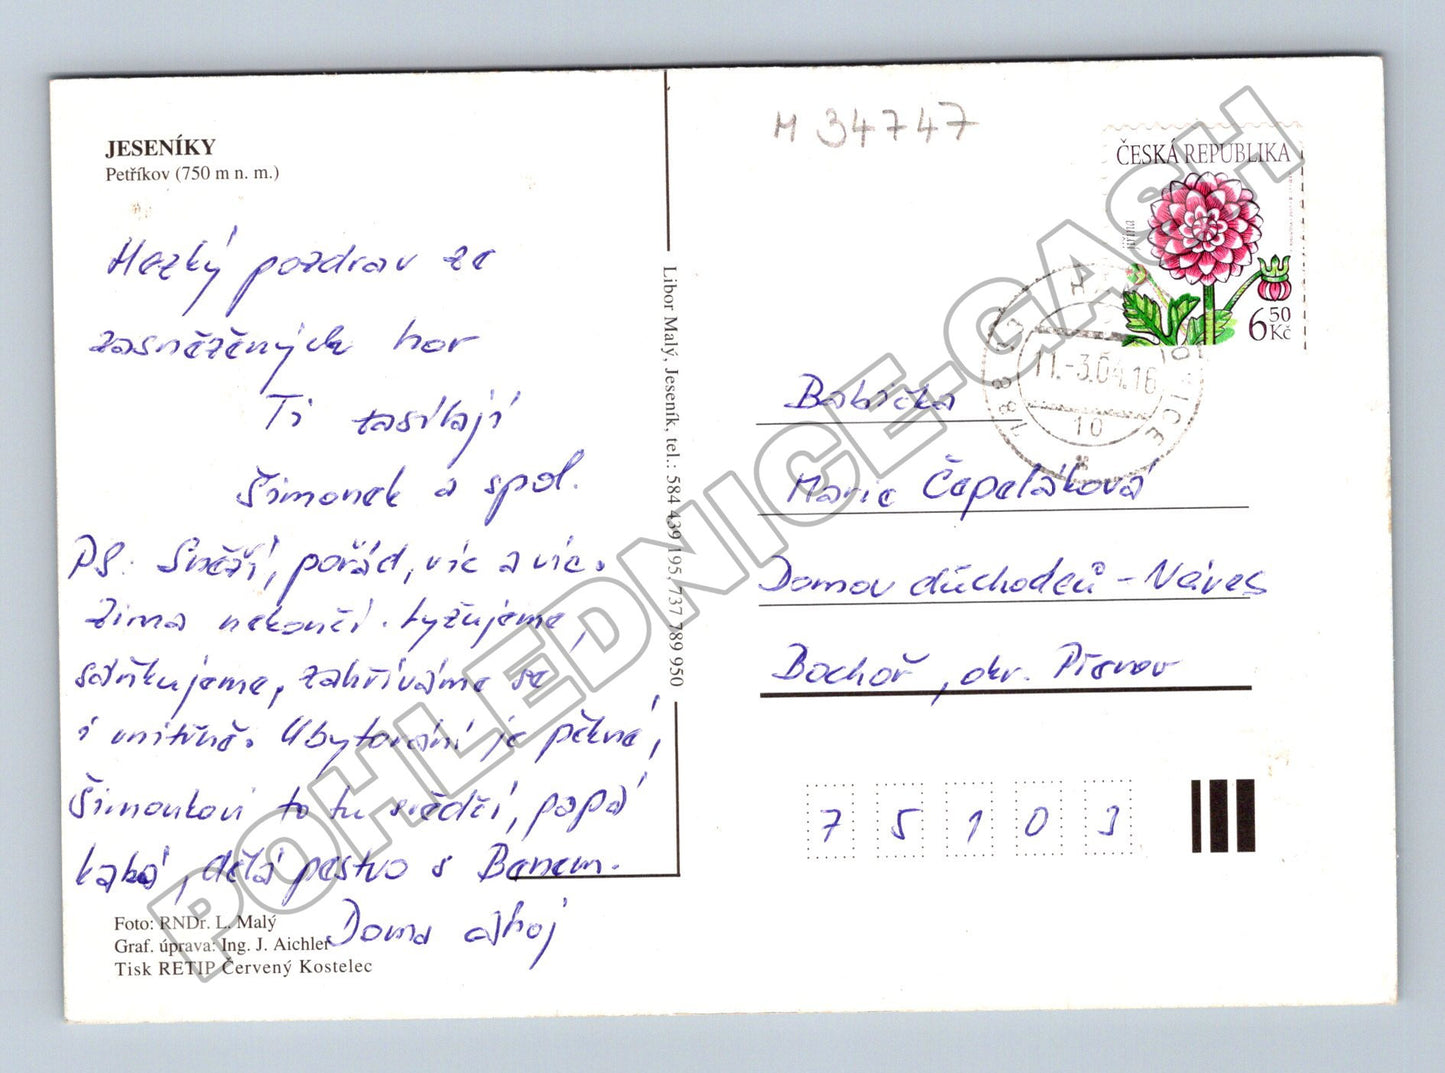 JESENÍKY
Petříkov (750 m n. m.)
Hezký pozdrav ze
zasněžených hor
Ti zasílají
Šimonek a spol.
PS: Sněží, pořád, víc a víc.
Zima nekončí. Lyžujeme,
sáňkujeme, zahříváme se
i vnitřně. Ubytování je pěkné,
Šimonkovi to tu svědčí, papá
kaká, dělá pestvo s Benem.
Doma Ahoj
Foto: RNDr. L. Malý
Graf. úprava: Ing. J. Aichler
Tisk RETIP Červený Kostelec
Libor Malý, Jeseník, tel.: 584 439 195, 737 789 950
M 34747
ČESKÁ REPUBLIKA
Jiřina
6 50 Kč
788 17
11.-3.04.16
10
Babička
Marie Čepeláková
Domov důchodců - Náves
Bochoř, okr. Přerov
7 5 1 0 3
POHLEDNICE-GASH